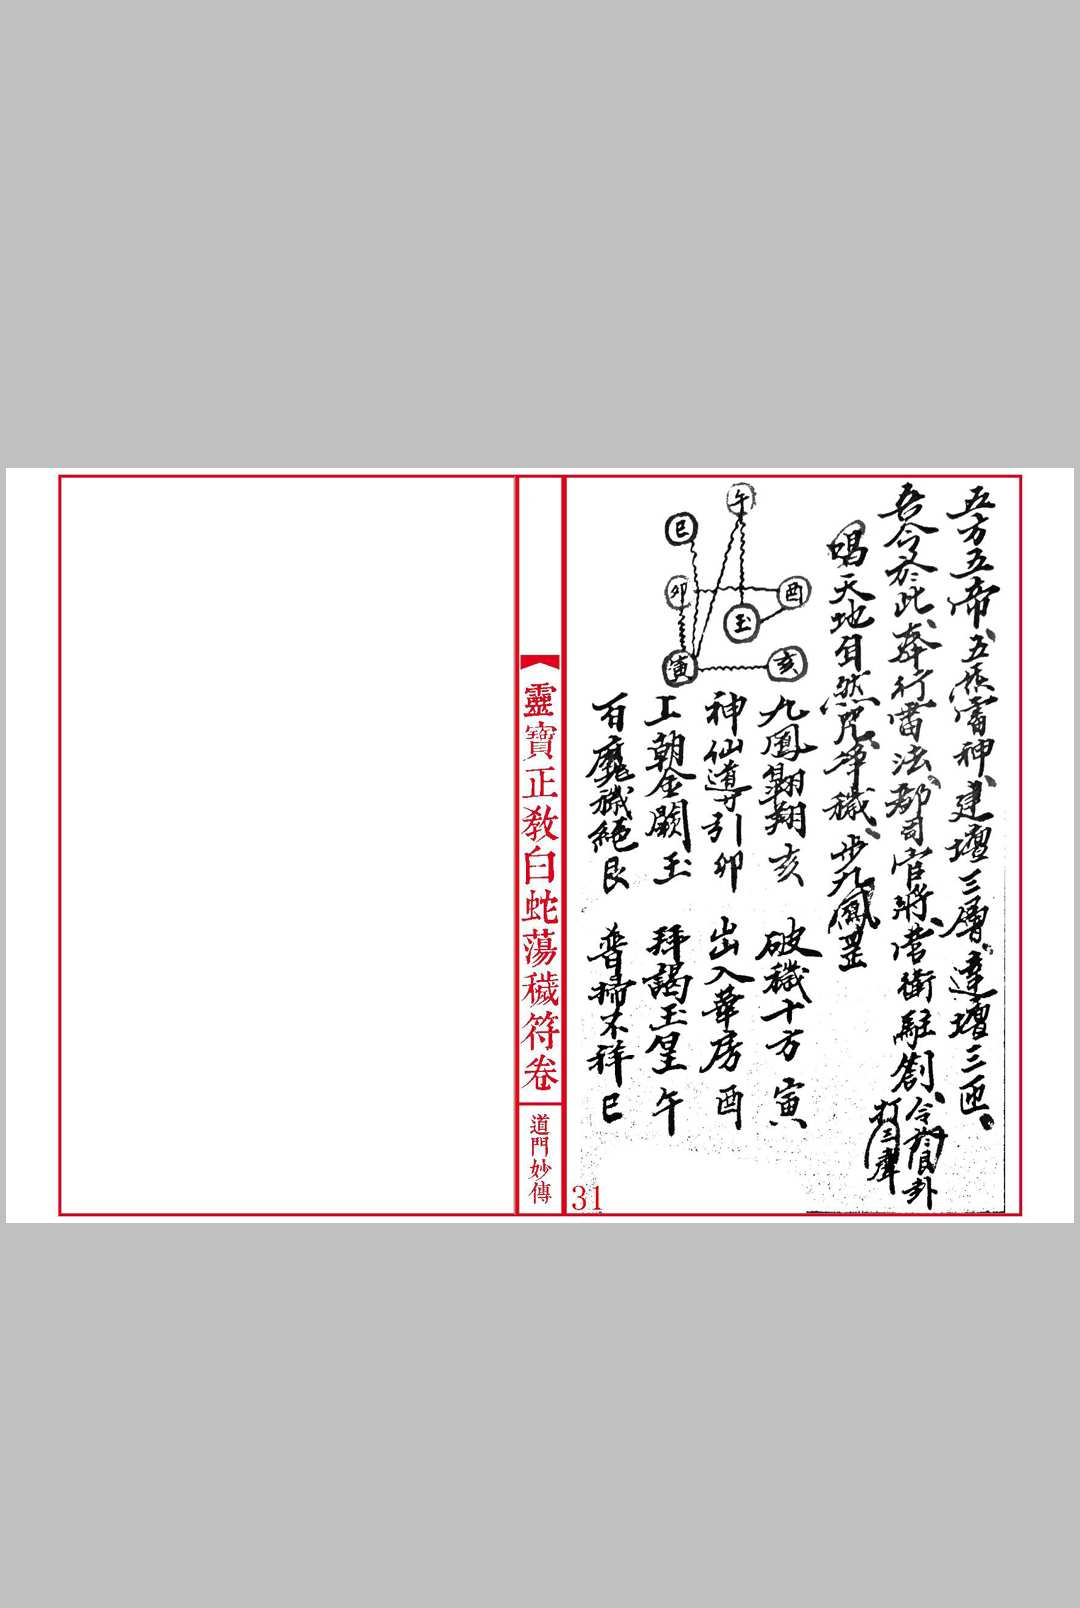 五方五帝五炁雷神建壇三層遶壇三匝
吾今於此奉行雷法都司官將當衛駐劄
令
卦
打三聲
唱天地自然咒淨穢步九鳳罡
午
巳
卯
酉
玉
寅
亥
九鳳翺翔亥 破穢十方寅
神仙導引卯 出入華房酉
工朝金闕玉 拜謁玉皇午
百魔穢絕艮 普掃不祥巳
靈寶正教白蛇蕩穢符卷
道門妙傳
31